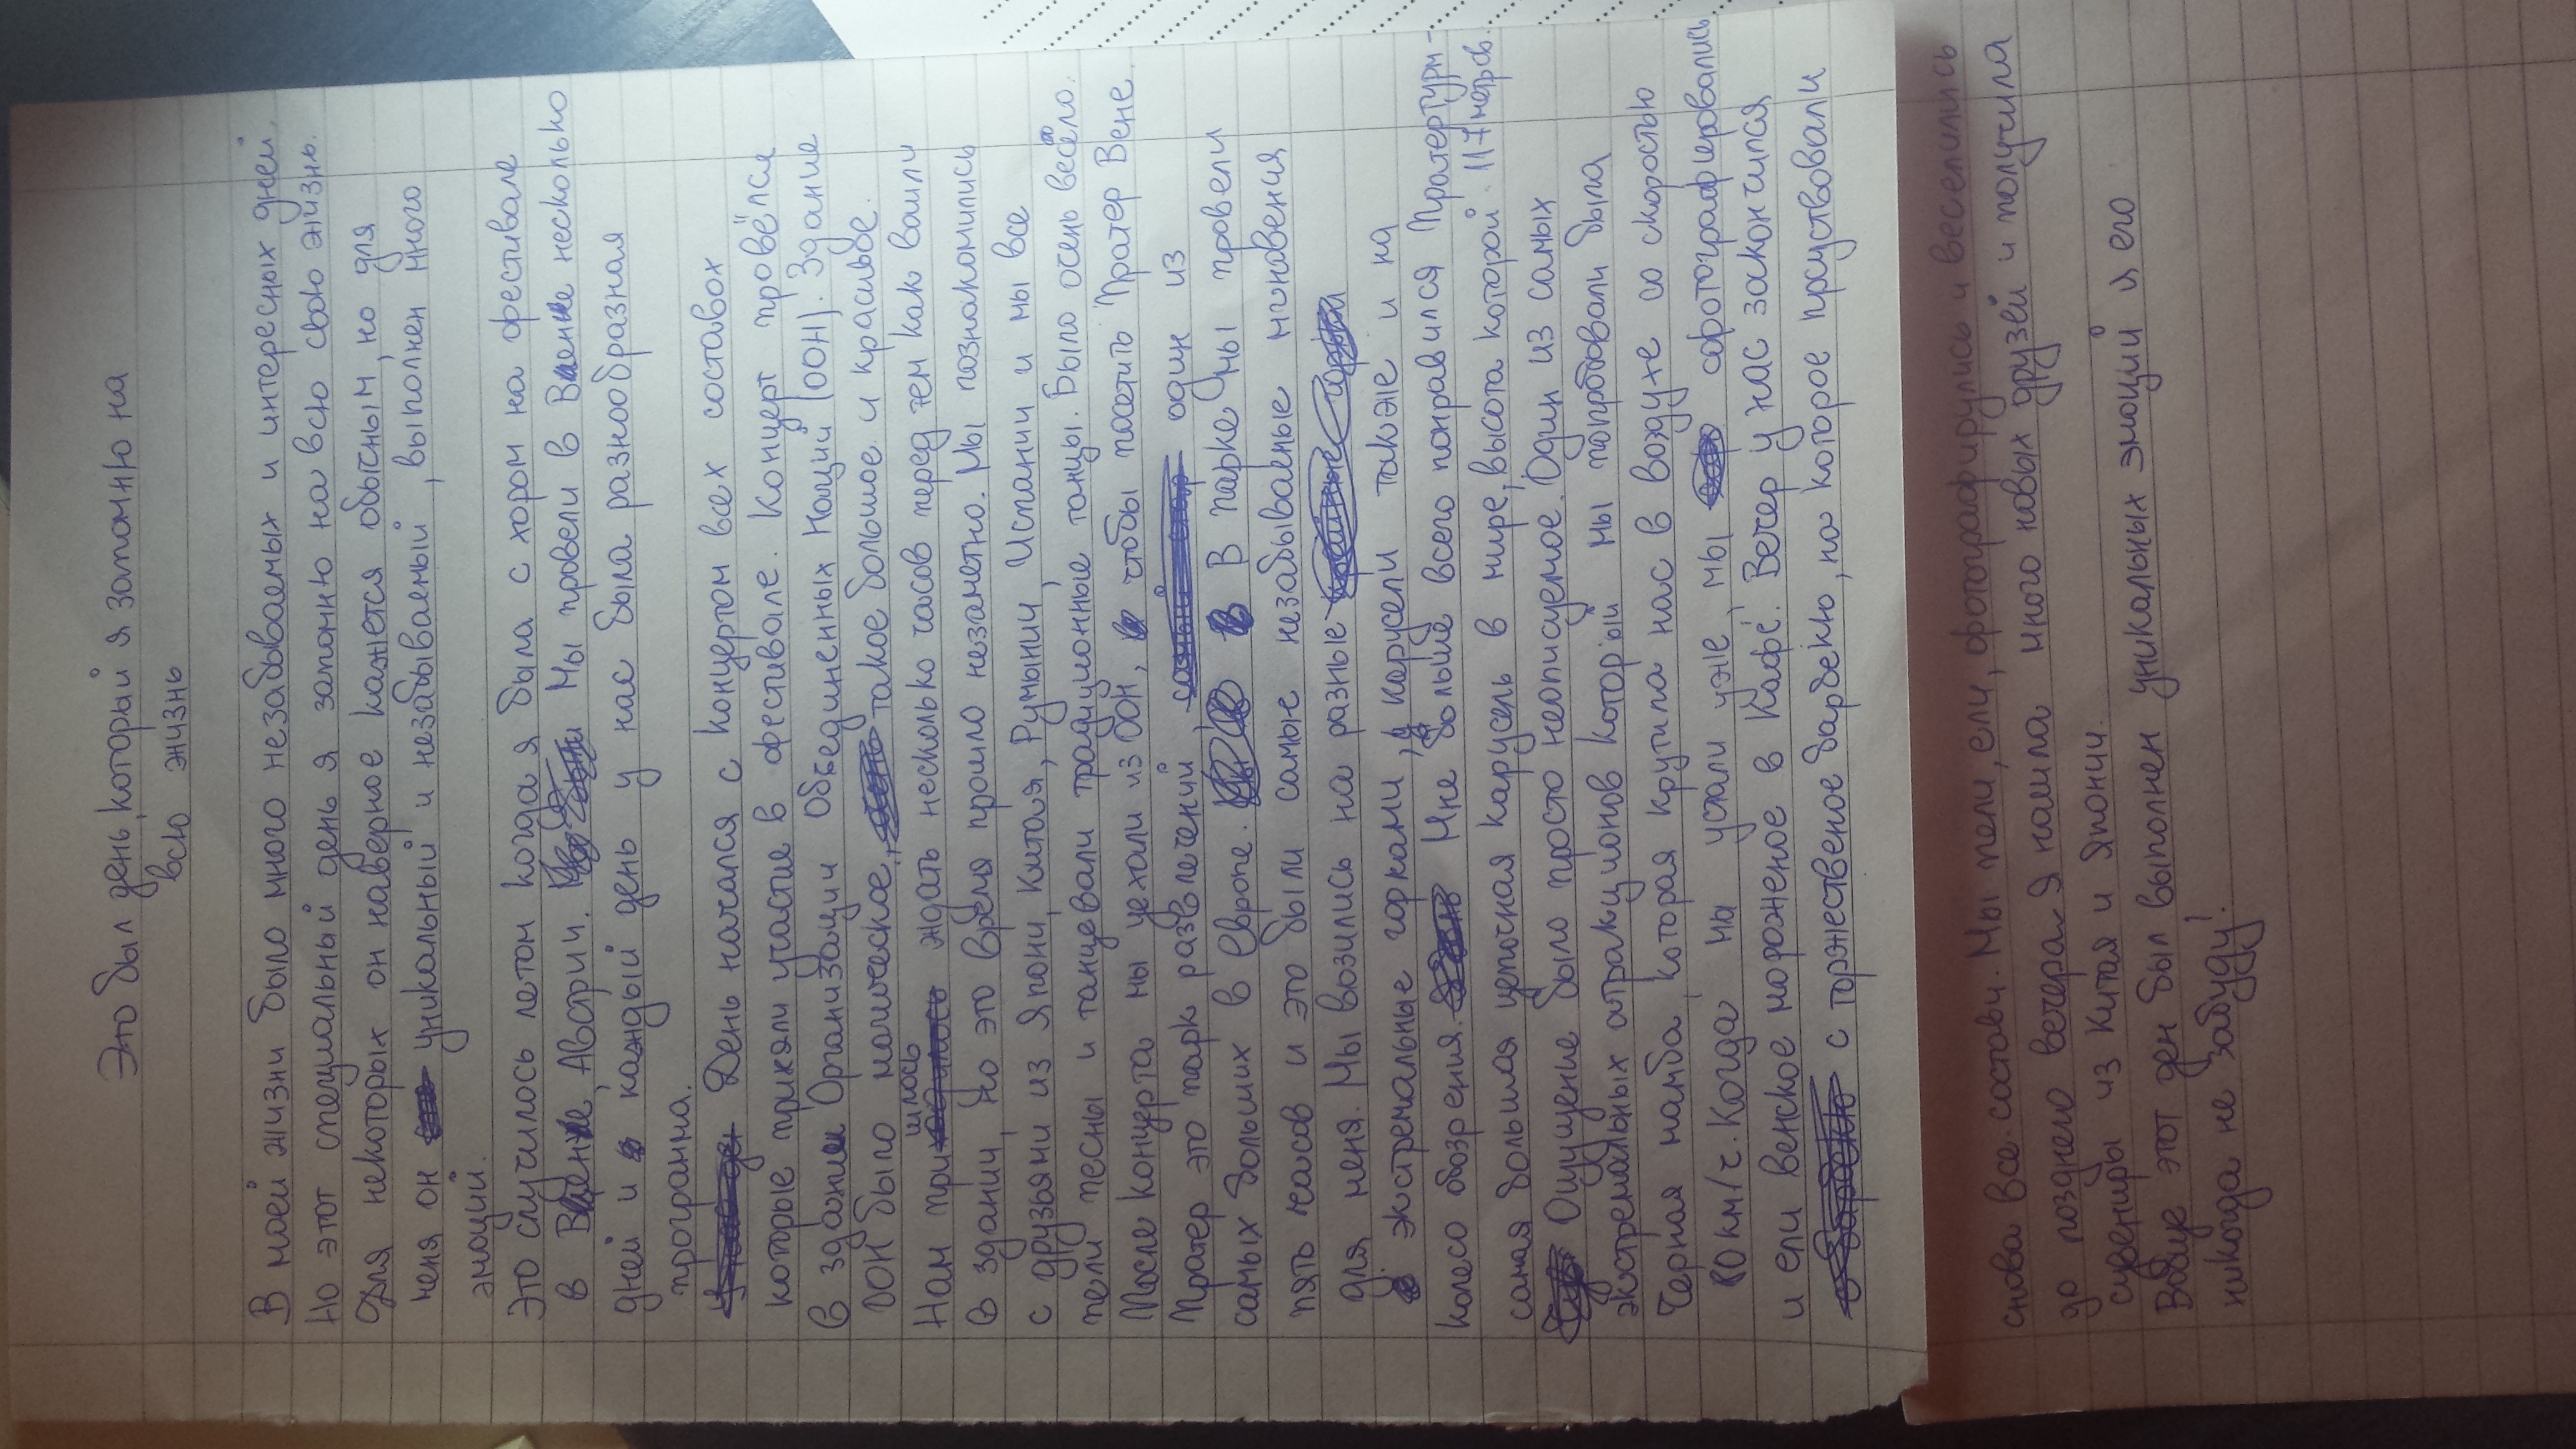 Это был день, который я запомню на
всю жизнь
В моей жизни было много незабываемых и интересных дней.
Но этот специальный день я запомню на всю свою жизнь.
Для некоторых он наверное кажется обычным, но для
меня он уникальный и незабываемый, выполнен много
эмоций.
Это случилось летом когда я была с хором на фестивале
в Вене, Австрии. Мы провели в Вене несколько
дней и каждый день у нас была разнообразная
программа.
День начался с концертом всех составох
которые прикяли участие в фестивале. Концерт провёлся
в здание Организации Объединенных Наций (ООН). Здание
ООН было магическое, такое большое и красивое.
Нам пришлось ждать несколько часов перед тем как вошли
в здании, но это время прошло незаметно. Мы познакомились
с друзьями из Японии, Китая, Румынии, Испании и мы все
пели песны и танцевали традиционные танцы. Было очень весело.
После концерта мы уехали из ООН, чтобы посетить Пратер Вене.
Пратер это парк развлечений один из
самых больших в Европе. В парке мы провели
пять часов и это были самые незабываемые мгновения
для меня. Мы возились на разные карусели также и на
экстремальные горками, Мне больше всего понравился Пратертурм -
колесо обозрения. 117 метров.
самая большая цепочная карусель в мире, высота которой
Ощущение было просто неописуемое. Один из самых
экстремальных атракционов который мы попробовали была
Чёрная мамба, которая крутила нас в воздухе со скоростью
80 км/ч. Когда мы устали уже, мы сфотографировались
и ели венское мороженое в Кафе. Вечер у нас закончился
с торжественое барбекю, на которое прауствовали
снова все составы. Мы пели, ели, фотографирулись и веселились
до позднего вечера. Я нашла много новых друзей и получила
сувениры из Китая и Японии.
Вобще этот ден был выполнен уникальных эмоций и его
никогда не забуду!